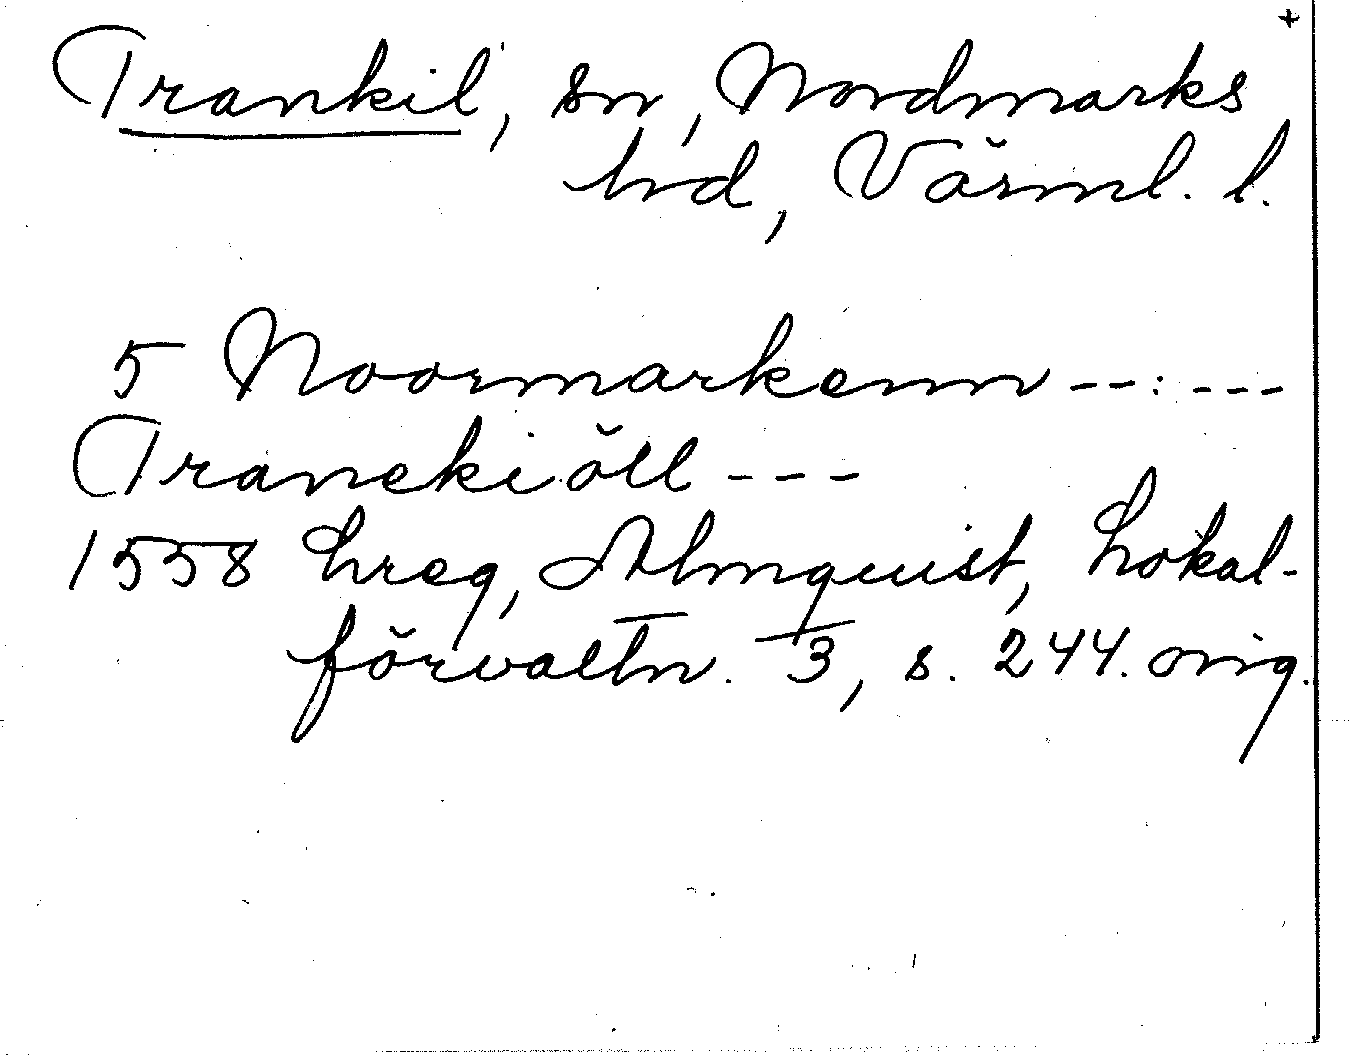 +
Trankil, sn, Nordmarks
hd, Värml. l.
5 Noormarkenn --:---
Tranekiöll ---
1558 Lreg, Almquist, Lokal-
förvaltn. 3, s. 244. orig.